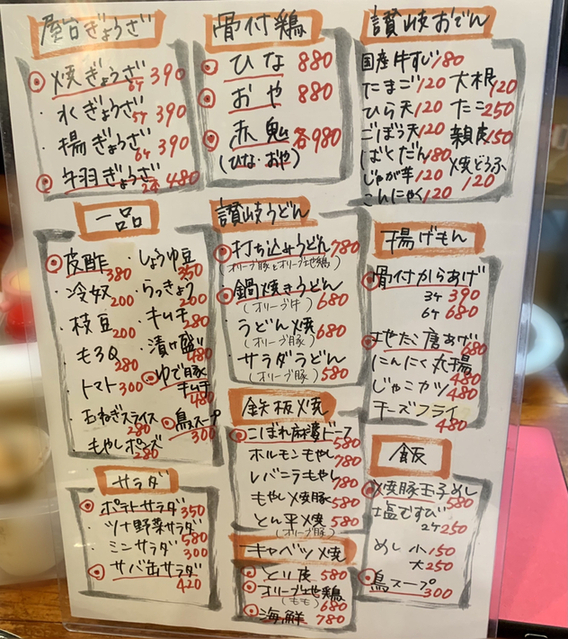 屋台ぎょうざ
焼ぎょうざ 6ケ 390
水ぎょうざ 5ケ 390
揚ぎょうざ 6ケ 390
手羽ぎょうざ 2本 480
骨付鶏
ひな 880
おや 880
赤鬼 各980
(ひな・おや)
讃岐おでん
国産牛すじ 180
たまご 120 大根 120
ひら天 120 たこ 250
ごぼう天 120 親皮 150
ばくだん 180 焼どうふ 120
じゃが芋 120
こんにゃく 120
一品
皮酢 380
冷奴 200
枝豆 200
もろQ 280
トマト 300
玉ねぎスライス 280
もやしポンズ 280
しょうゆ豆 350
らっきょう 200
キムチ 280
漬け盛り 480
ゆで豚キムチ 480
鳥スープ 300
讃岐うどん
打ち込みうどん 780
(オリーブ豚とオリーブ地鶏)
鍋焼きうどん 680
(オリーブ牛)
うどん焼 680
(オリーブ豚)
サラダうどん 580
(オリーブ豚)
揚げもん
骨付からあげ
3ケ 390
6ケ 680
地だこ唐あげ 680
にんにく丸揚 480
じゃこカツ 480
チーズフライ 480
鉄板焼
こぼれ麻婆ドーフ 580
ホルモンもやし 780
レバニラもやし 780
もやし焼豚 580
とん平焼 580
(オリーブ豚)
飯
焼豚玉子めし 580
塩むすび 2ケ 250
めし 小 150
大 250
鳥スープ 300
サラダ
ポテトサラダ 350
ツナ野菜サラダ 580
ミニサラダ 300
サバ缶サラダ 420
キャベツ焼
とり皮 580
オリーブ地鶏 680
(もも)
海鮮 780